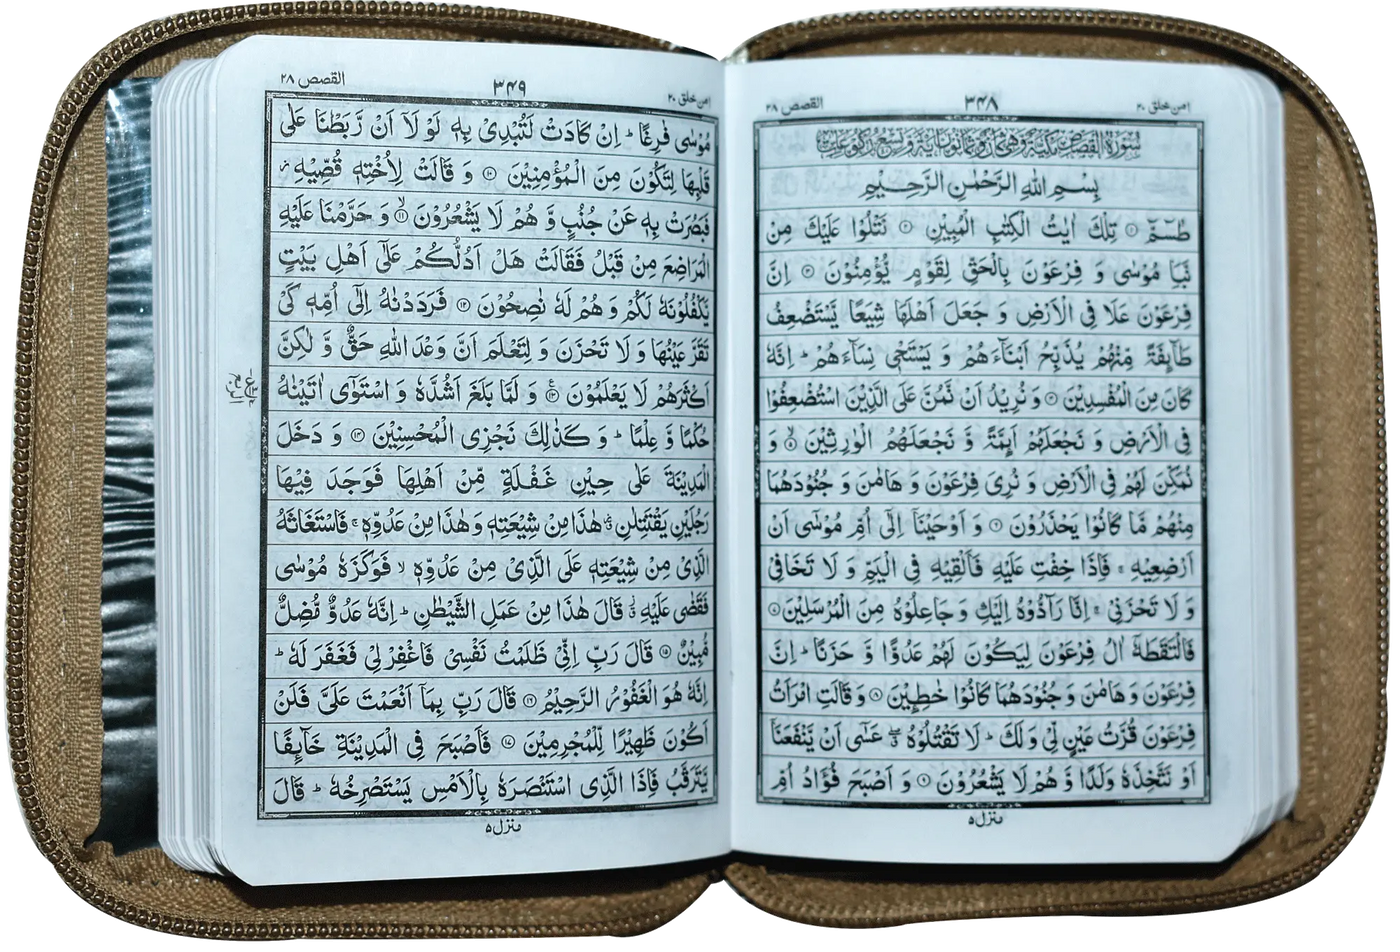 امن خلق ۲۰
۳۴۸
القصص ۲۸
سُوْرَةُ الْقَصَصِ مَكِّيَّةٌ وَّهِيَ ثَمَانٌ وَّثَمَانُوْنَ اٰيَةً وَّتِسْعُ رُكُوْعَاتٍ
بِسْمِ اللّٰهِ الرَّحْمٰنِ الرَّحِيْمِ
طٰسٓمّٓ ۝۱ تِلْكَ اٰيٰتُ الْكِتٰبِ الْمُبِيْنِ ۝۲ نَتْلُوْا عَلَيْكَ مِنْ
نَّبَاِ مُوْسٰى وَ فِرْعَوْنَ بِالْحَقِّ لِقَوْمٍ يُّؤْمِنُوْنَ ۝۳ اِنَّ
فِرْعَوْنَ عَلَا فِى الْاَرْضِ وَ جَعَلَ اَهْلَهَا شِيَعًا يَّسْتَضْعِفُ
طَآىِٕفَةً مِّنْهُمْ يُذَبِّحُ اَبْنَآءَهُمْ وَ يَسْتَحْىٖ نِسَآءَهُمْ ؕ اِنَّهٗ
كَانَ مِنَ الْمُفْسِدِيْنَ ۝۴ وَ نُرِيْدُ اَنْ نَّمُنَّ عَلَى الَّذِيْنَ اسْتُضْعِفُوْا
فِى الْاَرْضِ وَ نَجْعَلَهُمْ اَىِٕمَّةً وَّ نَجْعَلَهُمُ الْوٰرِثِيْنَ ۝۵ۙ وَ
نُمَكِّنَ لَهُمْ فِى الْاَرْضِ وَ نُرِىَ فِرْعَوْنَ وَ هَامٰنَ وَ جُنُوْدَهُمَا
مِنْهُمْ مَّا كَانُوْا يَحْذَرُوْنَ ۝۶ وَ اَوْحَيْنَاۤ اِلٰۤى اُمِّ مُوْسٰۤى اَنْ
اَرْضِعِيْهِ ۚ فَاِذَا خِفْتِ عَلَيْهِ فَاَلْقِيْهِ فِى الْيَمِّ وَ لَا تَخَافِىْ
وَ لَا تَحْزَنِىْ ۚ اِنَّا رَآدُّوْهُ اِلَيْكِ وَ جَاعِلُوْهُ مِنَ الْمُرْسَلِيْنَ ۝۷
فَالْتَقَطَهٗۤ اٰلُ فِرْعَوْنَ لِيَكُوْنَ لَهُمْ عَدُوًّا وَّ حَزَنًا ؕ اِنَّ
فِرْعَوْنَ وَ هَامٰنَ وَ جُنُوْدَهُمَا كَانُوْا خٰطِـِٕيْنَ ۝۸ وَ قَالَتِ امْرَاَتُ
فِرْعَوْنَ قُرَّتُ عَيْنٍ لِّىْ وَ لَكَ ؕ لَا تَقْتُلُوْهُ ۖۗ عَسٰۤى اَنْ يَّنْفَعَنَاۤ
اَوْ نَتَّخِذَهٗ وَلَدًا وَّ هُمْ لَا يَشْعُرُوْنَ ۝۹ وَ اَصْبَحَ فُؤَادُ اُمِّ
منزل ۵
امن خلق ۲۰
۳۴۹
القصص ۲۸
مُوْسٰى فٰرِغًا ؕ اِنْ كَادَتْ لَتُبْدِىْ بِهٖ لَوْ لَاۤ اَنْ رَّبَطْنَا عَلٰى
قَلْبِهَا لِتَكُوْنَ مِنَ الْمُؤْمِنِيْنَ ۝۱۰ وَ قَالَتْ لِاُخْتِهٖ قُصِّيْهِ ؗ
فَبَصُرَتْ بِهٖ عَنْ جُنُبٍ وَّ هُمْ لَا يَشْعُرُوْنَ ۝۱۱ۙ وَ حَرَّمْنَا عَلَيْهِ
الْمَرَاضِعَ مِنْ قَبْلُ فَقَالَتْ هَلْ اَدُلُّكُمْ عَلٰۤى اَهْلِ بَيْتٍ
يَّكْفُلُوْنَهٗ لَكُمْ وَ هُمْ لَهٗ نٰصِحُوْنَ ۝۱۲ فَرَدَدْنٰهُ اِلٰۤى اُمِّهٖ كَىْ
تَقَرَّ عَيْنُهَا وَ لَا تَحْزَنَ وَ لِتَعْلَمَ اَنَّ وَعْدَ اللّٰهِ حَقٌّ وَّ لٰكِنَّ
اَكْثَرَهُمْ لَا يَعْلَمُوْنَ ۝۱۳ۧ وَ لَمَّا بَلَغَ اَشُدَّهٗ وَ اسْتَوٰۤى اٰتَيْنٰهُ
حُكْمًا وَّ عِلْمًا ؕ وَ كَذٰلِكَ نَجْزِى الْمُحْسِنِيْنَ ۝۱۴ وَ دَخَلَ
الْمَدِيْنَةَ عَلٰى حِيْنِ غَفْلَةٍ مِّنْ اَهْلِهَا فَوَجَدَ فِيْهَا
رَجُلَيْنِ يَقْتَتِلٰنِ ؗۗ هٰذَا مِنْ شِيْعَتِهٖ وَ هٰذَا مِنْ عَدُوِّهٖ ۚ فَاسْتَغَاثَهُ
الَّذِىْ مِنْ شِيْعَتِهٖ عَلَى الَّذِىْ مِنْ عَدُوِّهٖ ۙ فَوَكَزَهٗ مُوْسٰى
فَقَضٰى عَلَيْهِ ؗۗ قَالَ هٰذَا مِنْ عَمَلِ الشَّيْطٰنِ ؕ اِنَّهٗ عَدُوٌّ مُّضِلٌّ
مُّبِيْنٌ ۝۱۵ قَالَ رَبِّ اِنِّىْ ظَلَمْتُ نَفْسِىْ فَاغْفِرْ لِىْ فَغَفَرَ لَهٗ ؕ
اِنَّهٗ هُوَ الْغَفُوْرُ الرَّحِيْمُ ۝۱۶ قَالَ رَبِّ بِمَاۤ اَنْعَمْتَ عَلَىَّ فَلَنْ
اَكُوْنَ ظَهِيْرًا لِّلْمُجْرِمِيْنَ ۝۱۷ فَاَصْبَحَ فِى الْمَدِيْنَةِ خَآىِٕفًا
يَّتَرَقَّبُ فَاِذَا الَّذِى اسْتَنْصَرَهٗ بِالْاَمْسِ يَسْتَصْرِخُهٗ ؕ قَالَ
منزل ۵